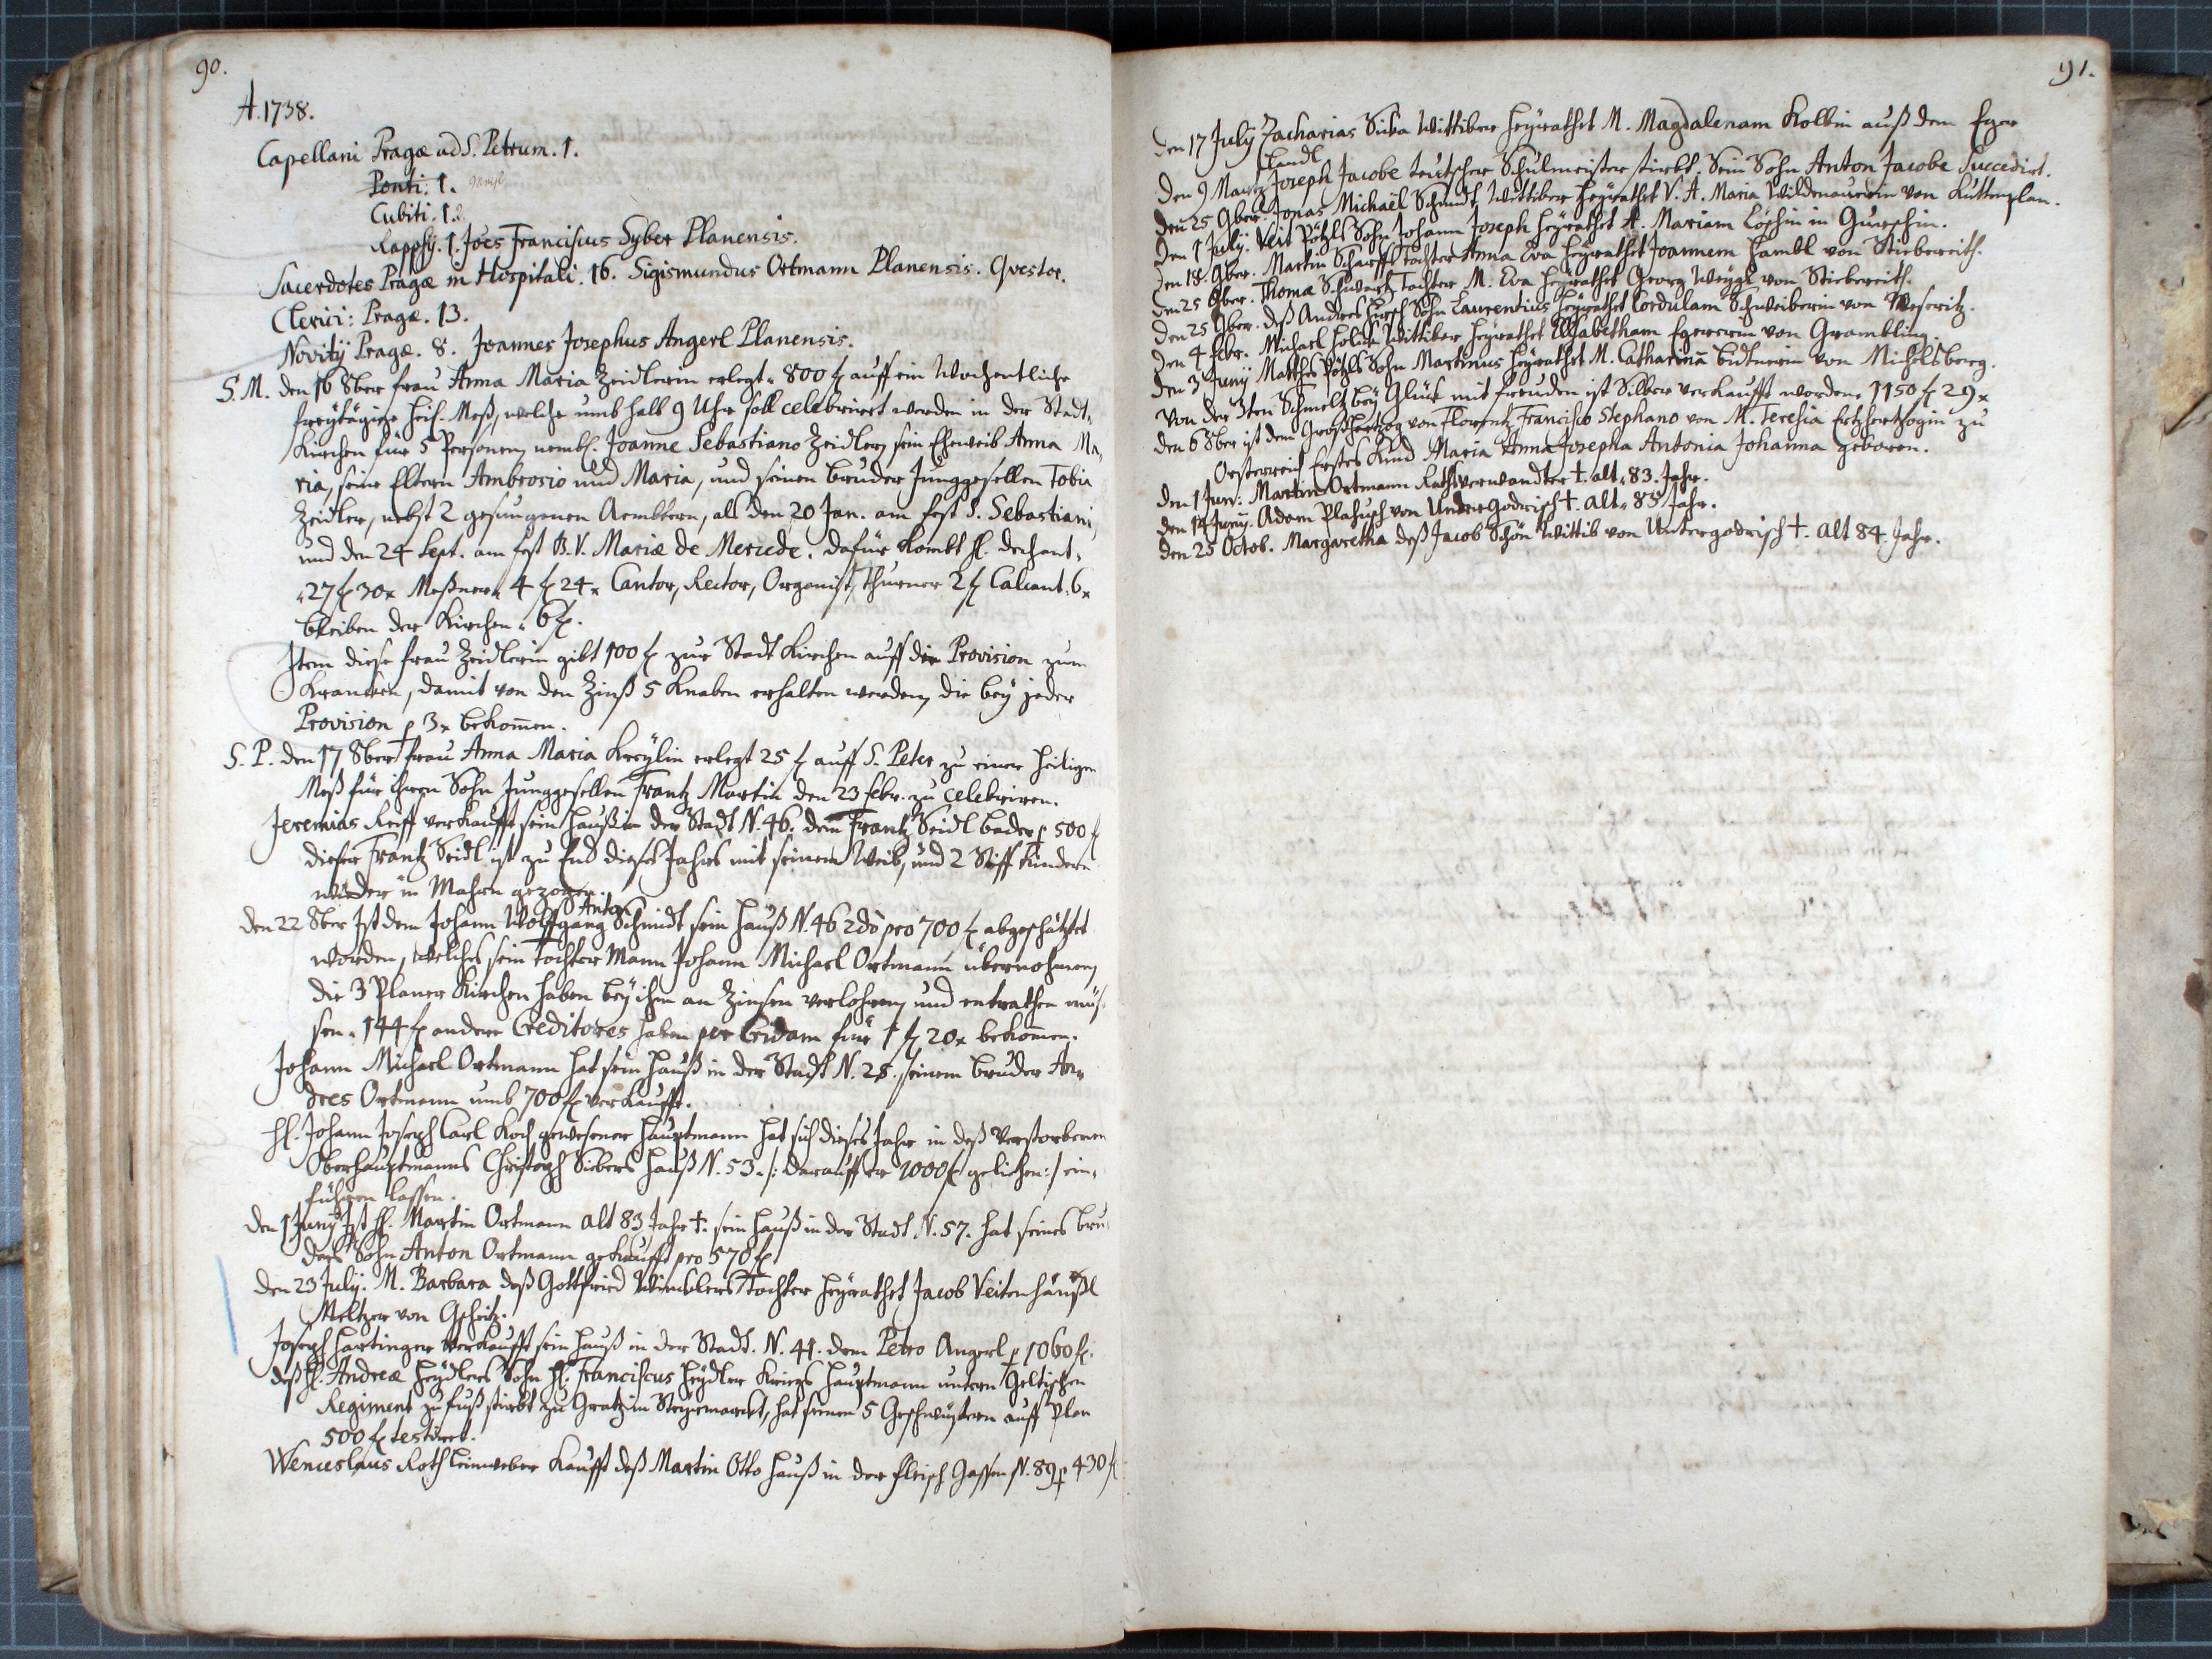 90.
A. 1738.
Capellani Pragæ ad S. Petrum. 1.
Ponti. 1.
Cubiti. 1.
Rappsÿ. 1. Joes Franciscus Syber Planensis.
Sacerdotes Pragæ in Hospitali. 16. Sigismundus Ortmann Planensis. Qvestor.
Clerici: Pragæ. 13.
Novitÿ Pragæ. 8. Joannes Josephus Angerl Planensis.
S. M. den 16 8ber frau Anna Maria Zeidlerin erlegt 800 f auff ein Wochentliche
freÿtägige heil. Meß, welche umb halb 9 Uhr soll celebrirt werden in der Stadt
Kirchen für 5 Personen, nembl. Joanne Sebastiano Zeidler, sein Eheweib Anna Ma
ria, seine Eltern Ambrosio und Maria, und seinen bruder Junggesellen Tobia
Zeidler, nebst 2 gesungenen Aembtern, als den 20 Jan. am fest S. Sebastiani,
und den 24 Sept. am fest B. V. Mariæ de Mercede. dafür kombt H. dechant
27 f 30 x Meßner 4 f 24 x Cantor, Rector, Organist, Thurner 2 f Calcant 6 x
bleiben der Kirchen 6 f.
Item diese frau Zeidlerin gibt 100 f zur Stadt Kirchen auff die Provision zum
Krancken, damit von den Zinß 5 Knaben erhalten werden, die beÿ jeder
Provision p 3 x bekom̄en.
S. P. den 17 8ber frau Anna Maria Kreÿlin erlegt 25 f auff S. Peter zu einer heiligen
Meß für ihren Sohn Junggesellen Frantz Martin den 23 febr. zu celebriren.
Jeremias Reiff verkaufft sein Hauß in der Stadt N. 46. dem Frantz Seidl bader p 500 f
dieser Frantz Seidl ist zu End dieses Jahrs mit seinem Weib, und 2 Stiff kindern
wieder in Mahrn gezogen.
Anton
den 22 8ber Ist dem Johann Wolffgang Schmidt sein Hauß N. 46 2dò pro 700 f abgeschätzet
worden, welches sein Tochter Mann Johann Michael Ortmann übernohmen,
die 3 Planer Kirchen haben beÿ ihm an Zinsen verlohren, und entrathen müs
sen 144 f andere Creditores haben per Cridam für 1 f 20 x bekom̄en.
Johann Michael Ortmann hat sein Hauß in der Stadt N. 28. seinem bruder An
dres Ortmann umb 700 f verkaufft.
H. Johann Joseph Carl Koch gewesener Hauptmann hat sich dieses Jahr in deß verstorbenen
Oberhauptmanns Christoph Siebers Hauß N. 53. /: darauff er 1000 f geliehen :/ ein
führen lassen.
den 1 Junÿ Ist H. Martin Ortmann alt 83 Jahr †. sein Hauß in der Stadt N. 57. hat seines bru
ders Sohn Anton Ortmann gekaufft pro 570 f.
den 23 Julÿ. M. Barbara deß Gottfried Wincklers Tochter heÿrathet Jacob Veitenhänßl
Meltzer von
Joseph Hartinger verkaufft sein Hauß in der Stadt. N. 41. dem Petro Angerl p 1060 f.
deß H. Andreæ Heÿdlers Sohn H. Franciscus Heÿdler Kriegs Hauptmann untern
Regiment zu fuß stirbt zu Gratz in Steÿermarckt, hat seinen 5 Geschwistern auff Plan
500 f testirt.
Wenceslaus Roth Leinweber kaufft deß Martin Otto Hauß in der fleisch Gassen N. 89 p 430 f
91.
den 17 Julÿ Zacharias Wittiber heÿrathet M. Magdalenam Kolbin auß dem Eger
Landl
den 9 Martz Joseph Jacobe teutscher Schulmeister stirbt. Sein Sohn Anton Jacobe Succedirt.
den 25 9ber. Jonas Michael Schmidt Wittiber heÿrathet V. A. Maria Wildenauerin von Kuttenplan.
den 1 Julÿ. Veit Pötzls Sohn Johann Joseph heÿrathet A. Mariam Löschin in
den 18. 9ber. Martin Scharffs Tochter Anna Eva heÿrathet Joannem Hambl von Stiebereith.
den 25 9ber. Thomæ Schwartz Tochter M. Eva heÿrathet Georg Weÿgl von Stiebereith.
den 25 9ber. deß Andres Sohn Laurentius heÿrathet Cordulam Schreiberin von Weseritz.
den 4 febr. Michael Wittiber heÿrathet Elisabetham Egererin von Grambling.
den 3 Junÿ Matthes Pötzls Sohn Martinus heÿrathet M. Catharinā bidtnerin von Michelsberg.
Von der 3ten Schmeltz beÿ Glück mit freuden ist Silber verkaufft worden 1150 f 29 x
den 6 8ber ist dem Großhertzog von Florentz Francisco Stephano von M. Teresia Ertzhertzogin zu
Oesterreich Erstes Kind Maria Anna Josepha Antonia Johanna geboren.
den 1 Jun: Martin Ortmann Rathsverwandter †. alt 83. Jahr.
den 14 Junÿ. Adam Plahusch von Untergodrisch †. alt 85 Jahr.
den 25 Octob. Margaretha deß Jacob Schön Wittib von Untergodrisch †. alt 84 Jahr.